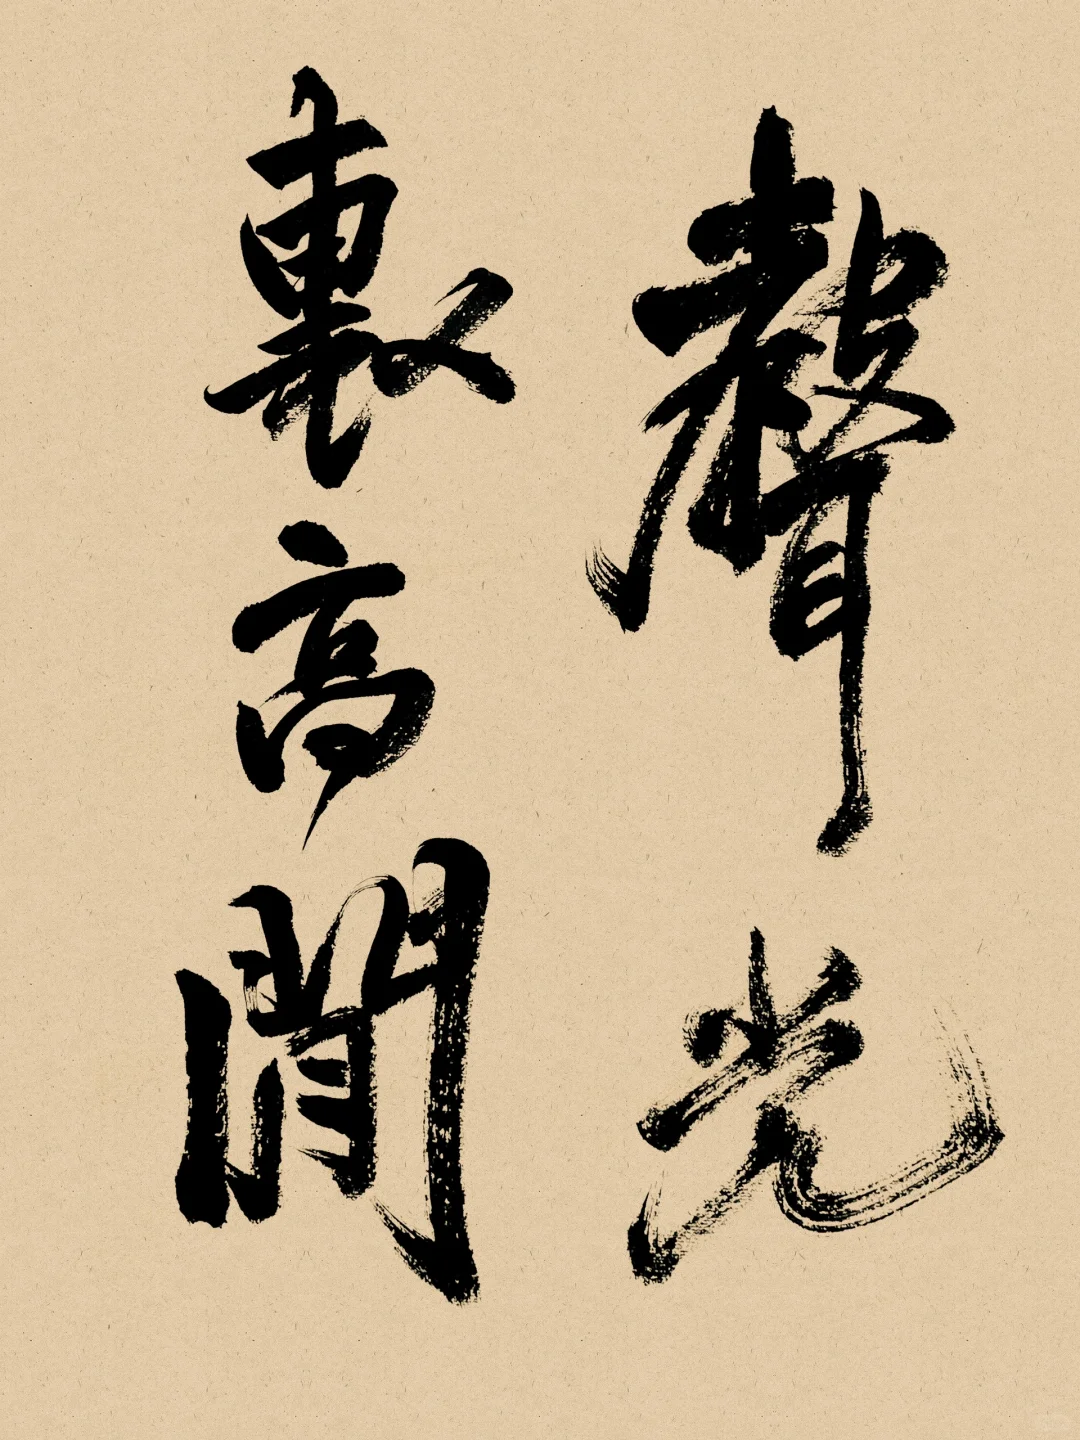 聲光
裏高閒